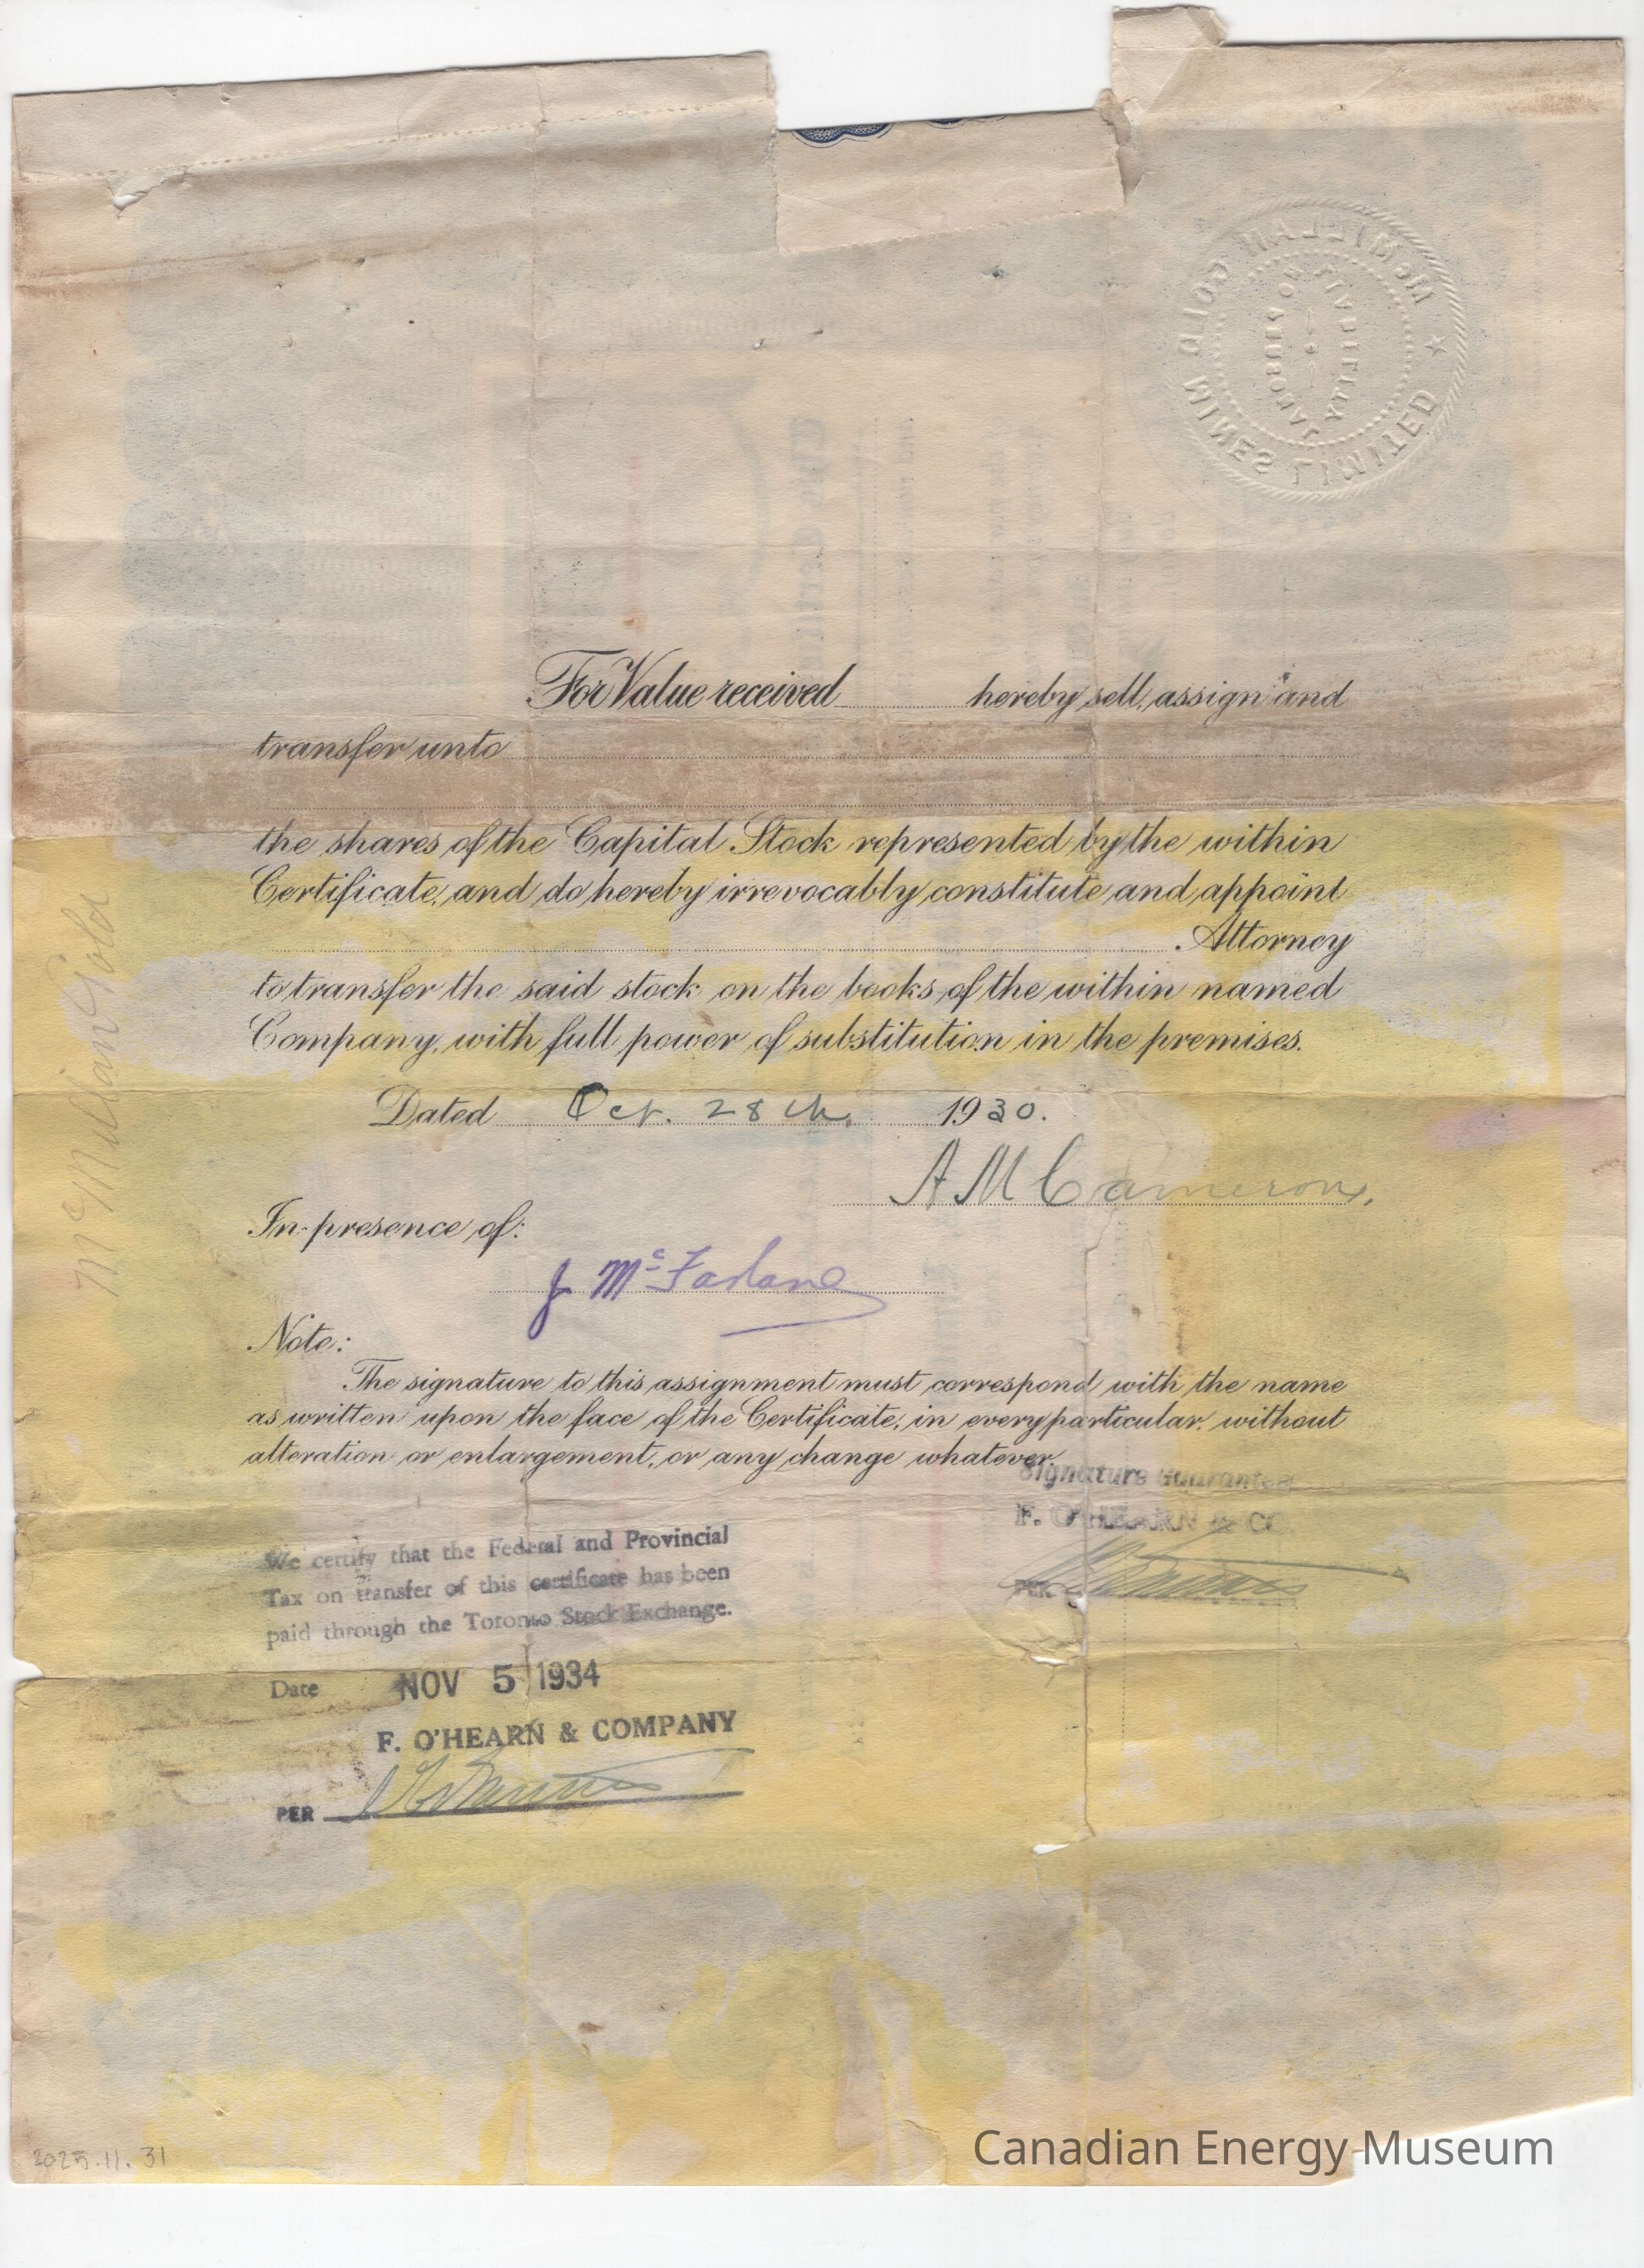 McMILLAN GOLD MINES LIMITED
NO PERSONAL LIABILITY
For Value received hereby sell, assign and
transfer unto
the shares of the Capital Stock represented by the within
Certificate, and do hereby irrevocably constitute and appoint
Attorney
to transfer the said stock on the books of the within named
Company, with full power of substitution in the premises.
Dated Oct. 28th. 1930.
A M Cameron.
In presence of:
J. McFarlane
Note:
The signature to this assignment must correspond with the name
as written upon the face of the Certificate, in every particular, without
alteration or enlargement, or any change whatever.
Signature Guaranteed
F. O'HEARN & CO.
PER
We certify that the Federal and Provincial
Tax on transfer of this certificate has been
paid through the Toronto Stock Exchange.
Date NOV 5 1934
F. O'HEARN & COMPANY
PER
McMillan Gold
2025.11.31
Canadian Energy Museum